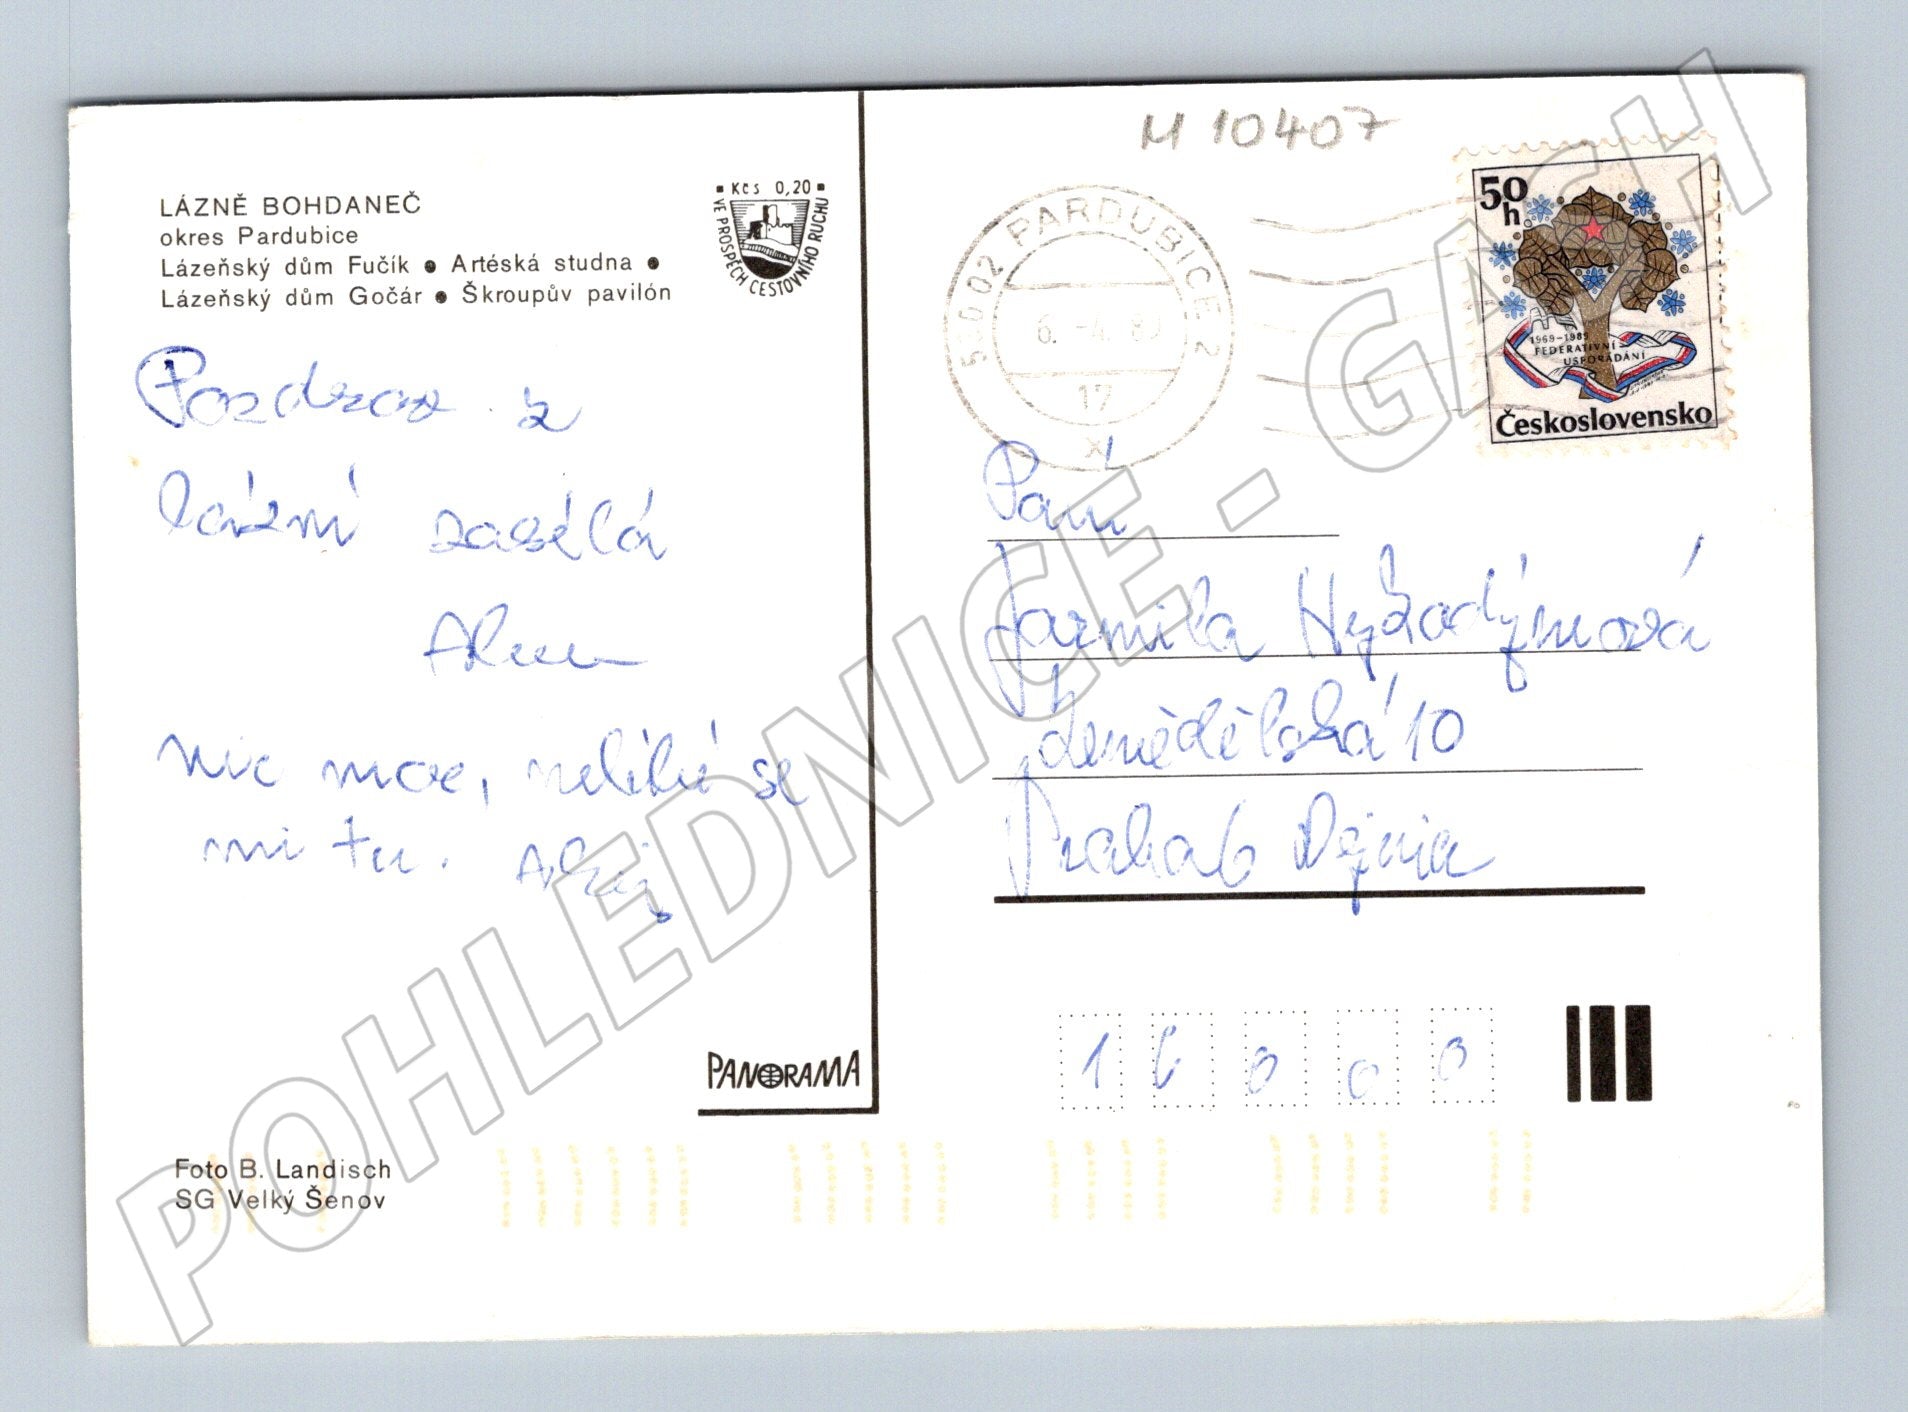 LÁZNĚ BOHDANEČ
okres Pardubice
Lázeňský dům Fučík ● Artéská studna ●
Lázeňský dům Gočár ● Škroupův pavilón
▪ Kčs 0,20 ▪
VE PROSPĚCH CESTOVNÍHO RUCHU
Pozdrav z
lázní zasílá
nic moc, nelíbí se
mi tu.
PANORAMA
Foto B. Landisch
SG Velký Šenov
M 10407
530 02 PARDUBICE 2
6. -4. 89
17
x
50
h
1969-1989
FEDERATIVNÍ
USPOŘÁDÁNÍ
Československo
Paní
Jarmila
Zemědělská 10
Praha 6 Dejvice
1 6 0 0 0
POHLEDNICE - GASH